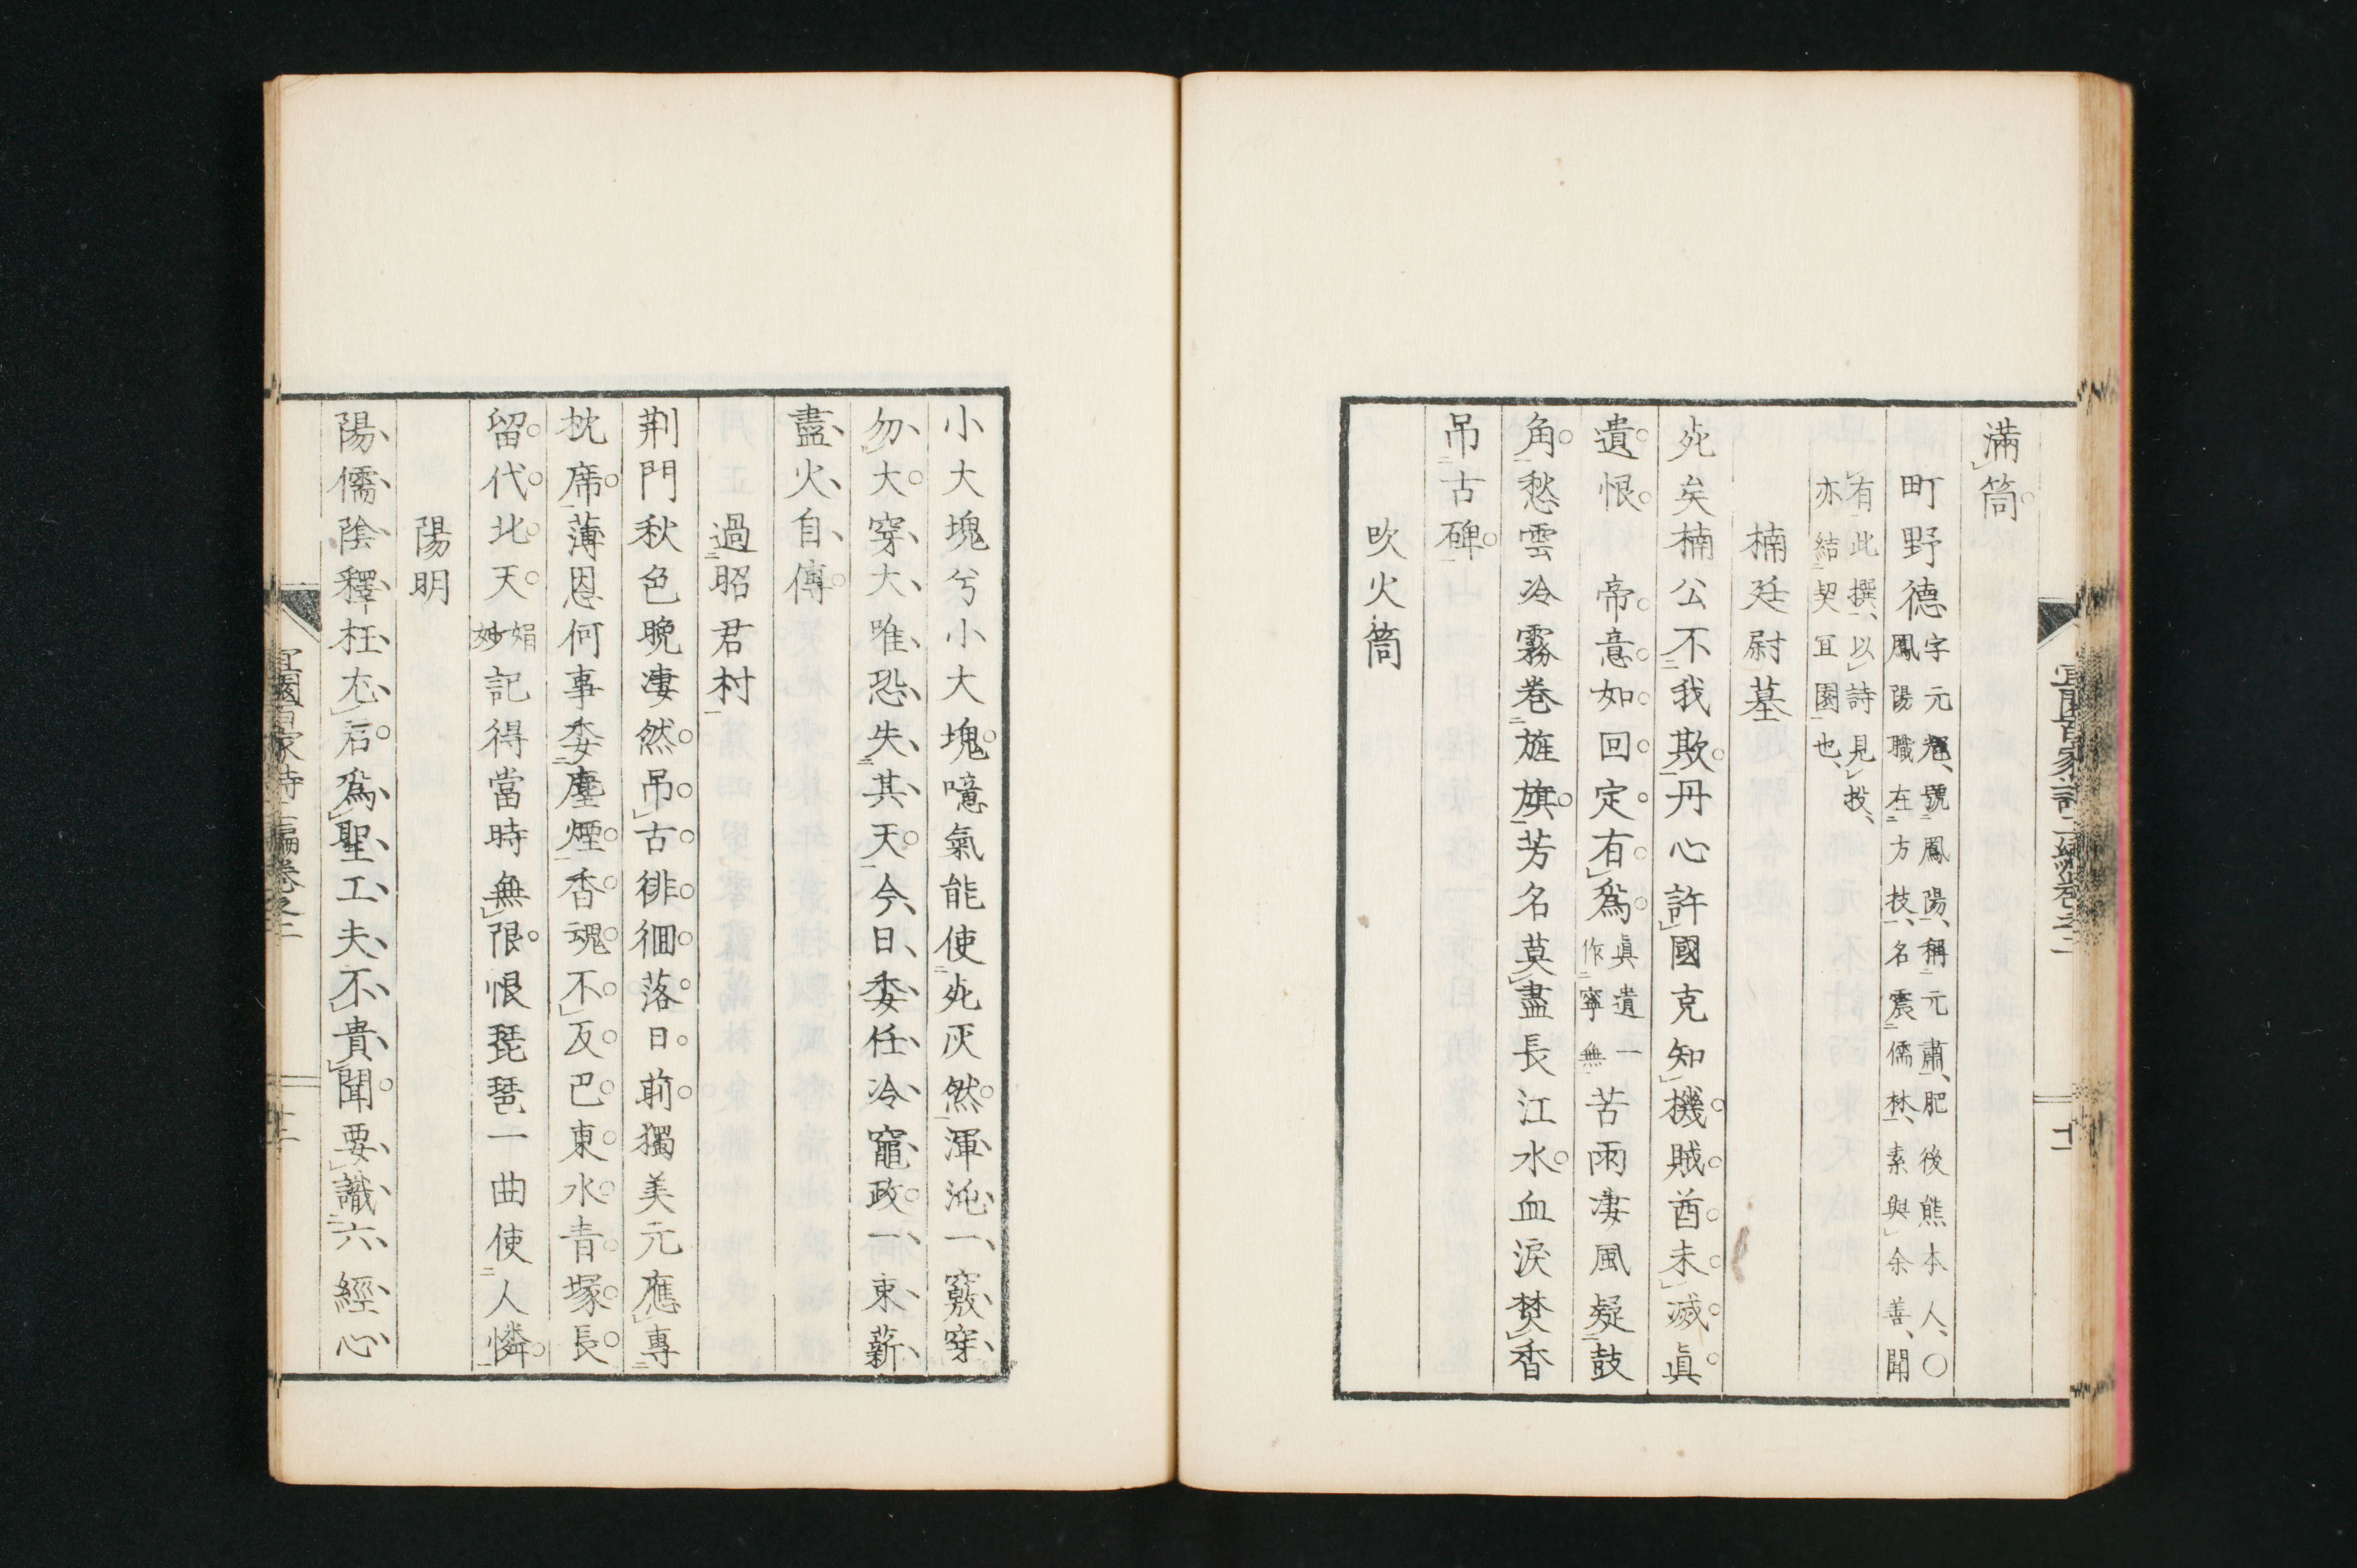 滿筒
町野德字元𩒨、號鳳陽、稱元肅、肥後熊本人、○鳳陽職在方技、名震儒林、素與余善、聞
有此撰、以詩見投、亦結契宜園也、
楠廷尉墓
死矣楠公不我欺丹心許國克知機賊酋未滅眞
遺恨 帝意如回定有爲眞遺一作寧無苦雨凄風凝鼓
角愁雲冷霧卷旌旗芳名莫盡長江水血淚焚香
吊古碑
吹火筒
小大塊兮小大塊噫氣能使死灰然渾沌一竅穿、
勿大穿大唯恐失其天今日委任冷竈政一束薪
盡火自傳
過昭君村
荆門秋色晩凄然吊古徘徊落日前獨美元應專
枕席薄恩何事委塵煙香魂不反巴東水青塚長
留代北天娟妙記得當時無限恨琵琶一曲使人憐
陽明
陽儒陰釋枉尤君爲聖工夫不貴聞要識六經心
宜園百家詩二編卷之二